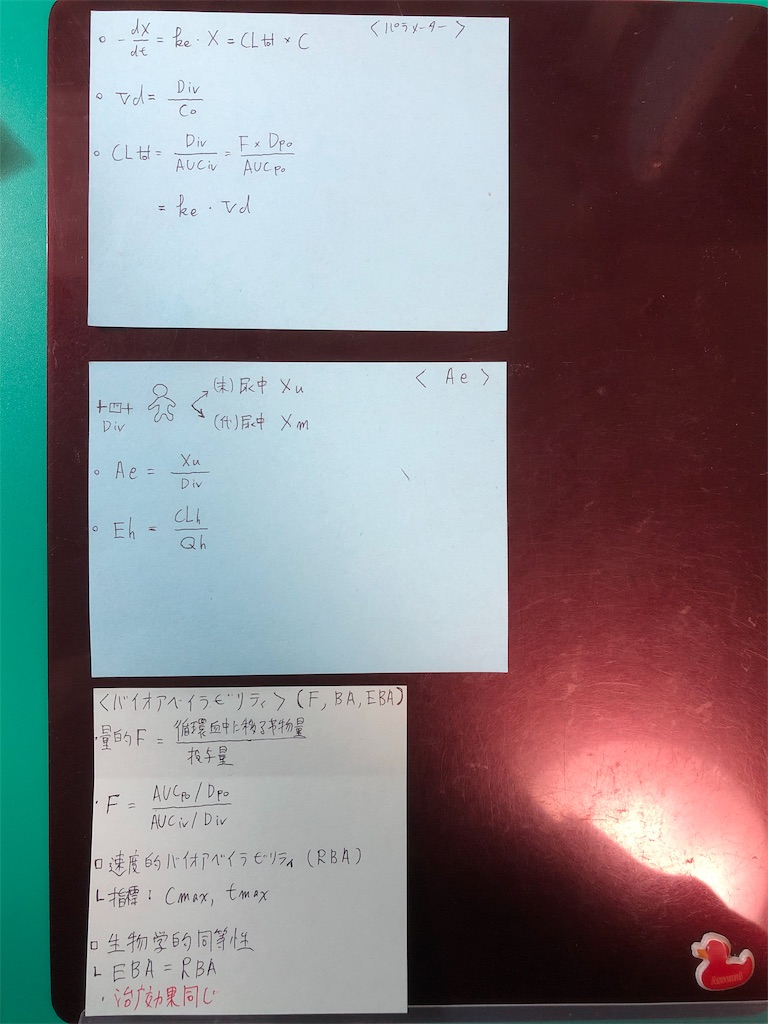 〈パラメーター〉
○ -dX/dt = ke・X = CLtot × C
○ Vd = Div/Co
○ CLtot = Div/AUCiv = F × Dpo/AUCpo
= ke・Vd
〈 Ae 〉
(未)尿中 Xu
Div
(代)尿中 Xm
○ Ae = Xu/Div
○ Eh = CLh/Qh
〈バイオアベイラビリティ〉(F, BA, EBA)
・量的F = 循環血中に移る薬物量/投与量
・F = AUCpo/Dpo / AUCiv/Div
□ 速度的バイオアベイラビリティ (RBA)
└ 指標: Cmax, tmax
□ 生物学的同等性
└ EBA = RBA
・治療効果同じ